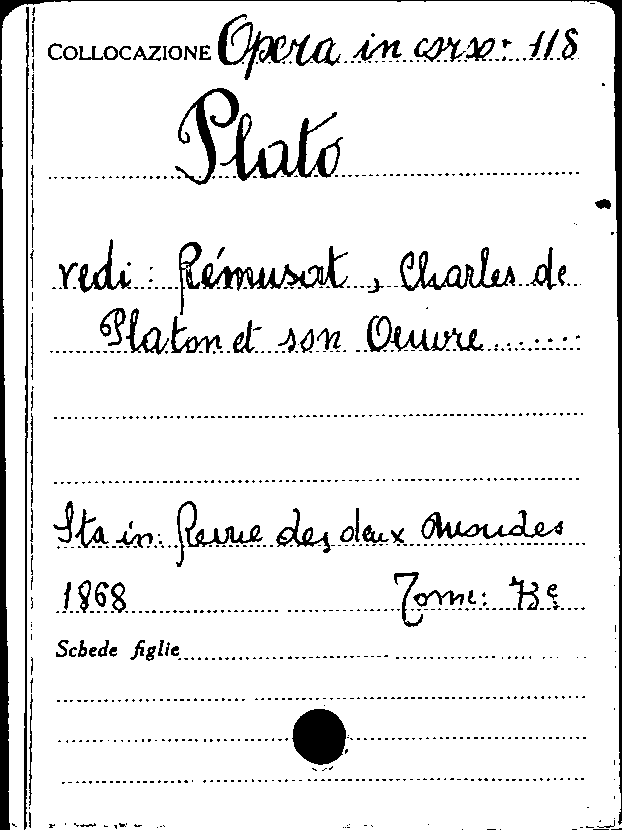 COLLOCAZIONE Opera in corso: 118
Plato
vedi: Rémusat, Charles de
Platon et son Oeuvre.......
Sta in: Revue des deux Mondes
1868 Tome: 73e
Schede figlie